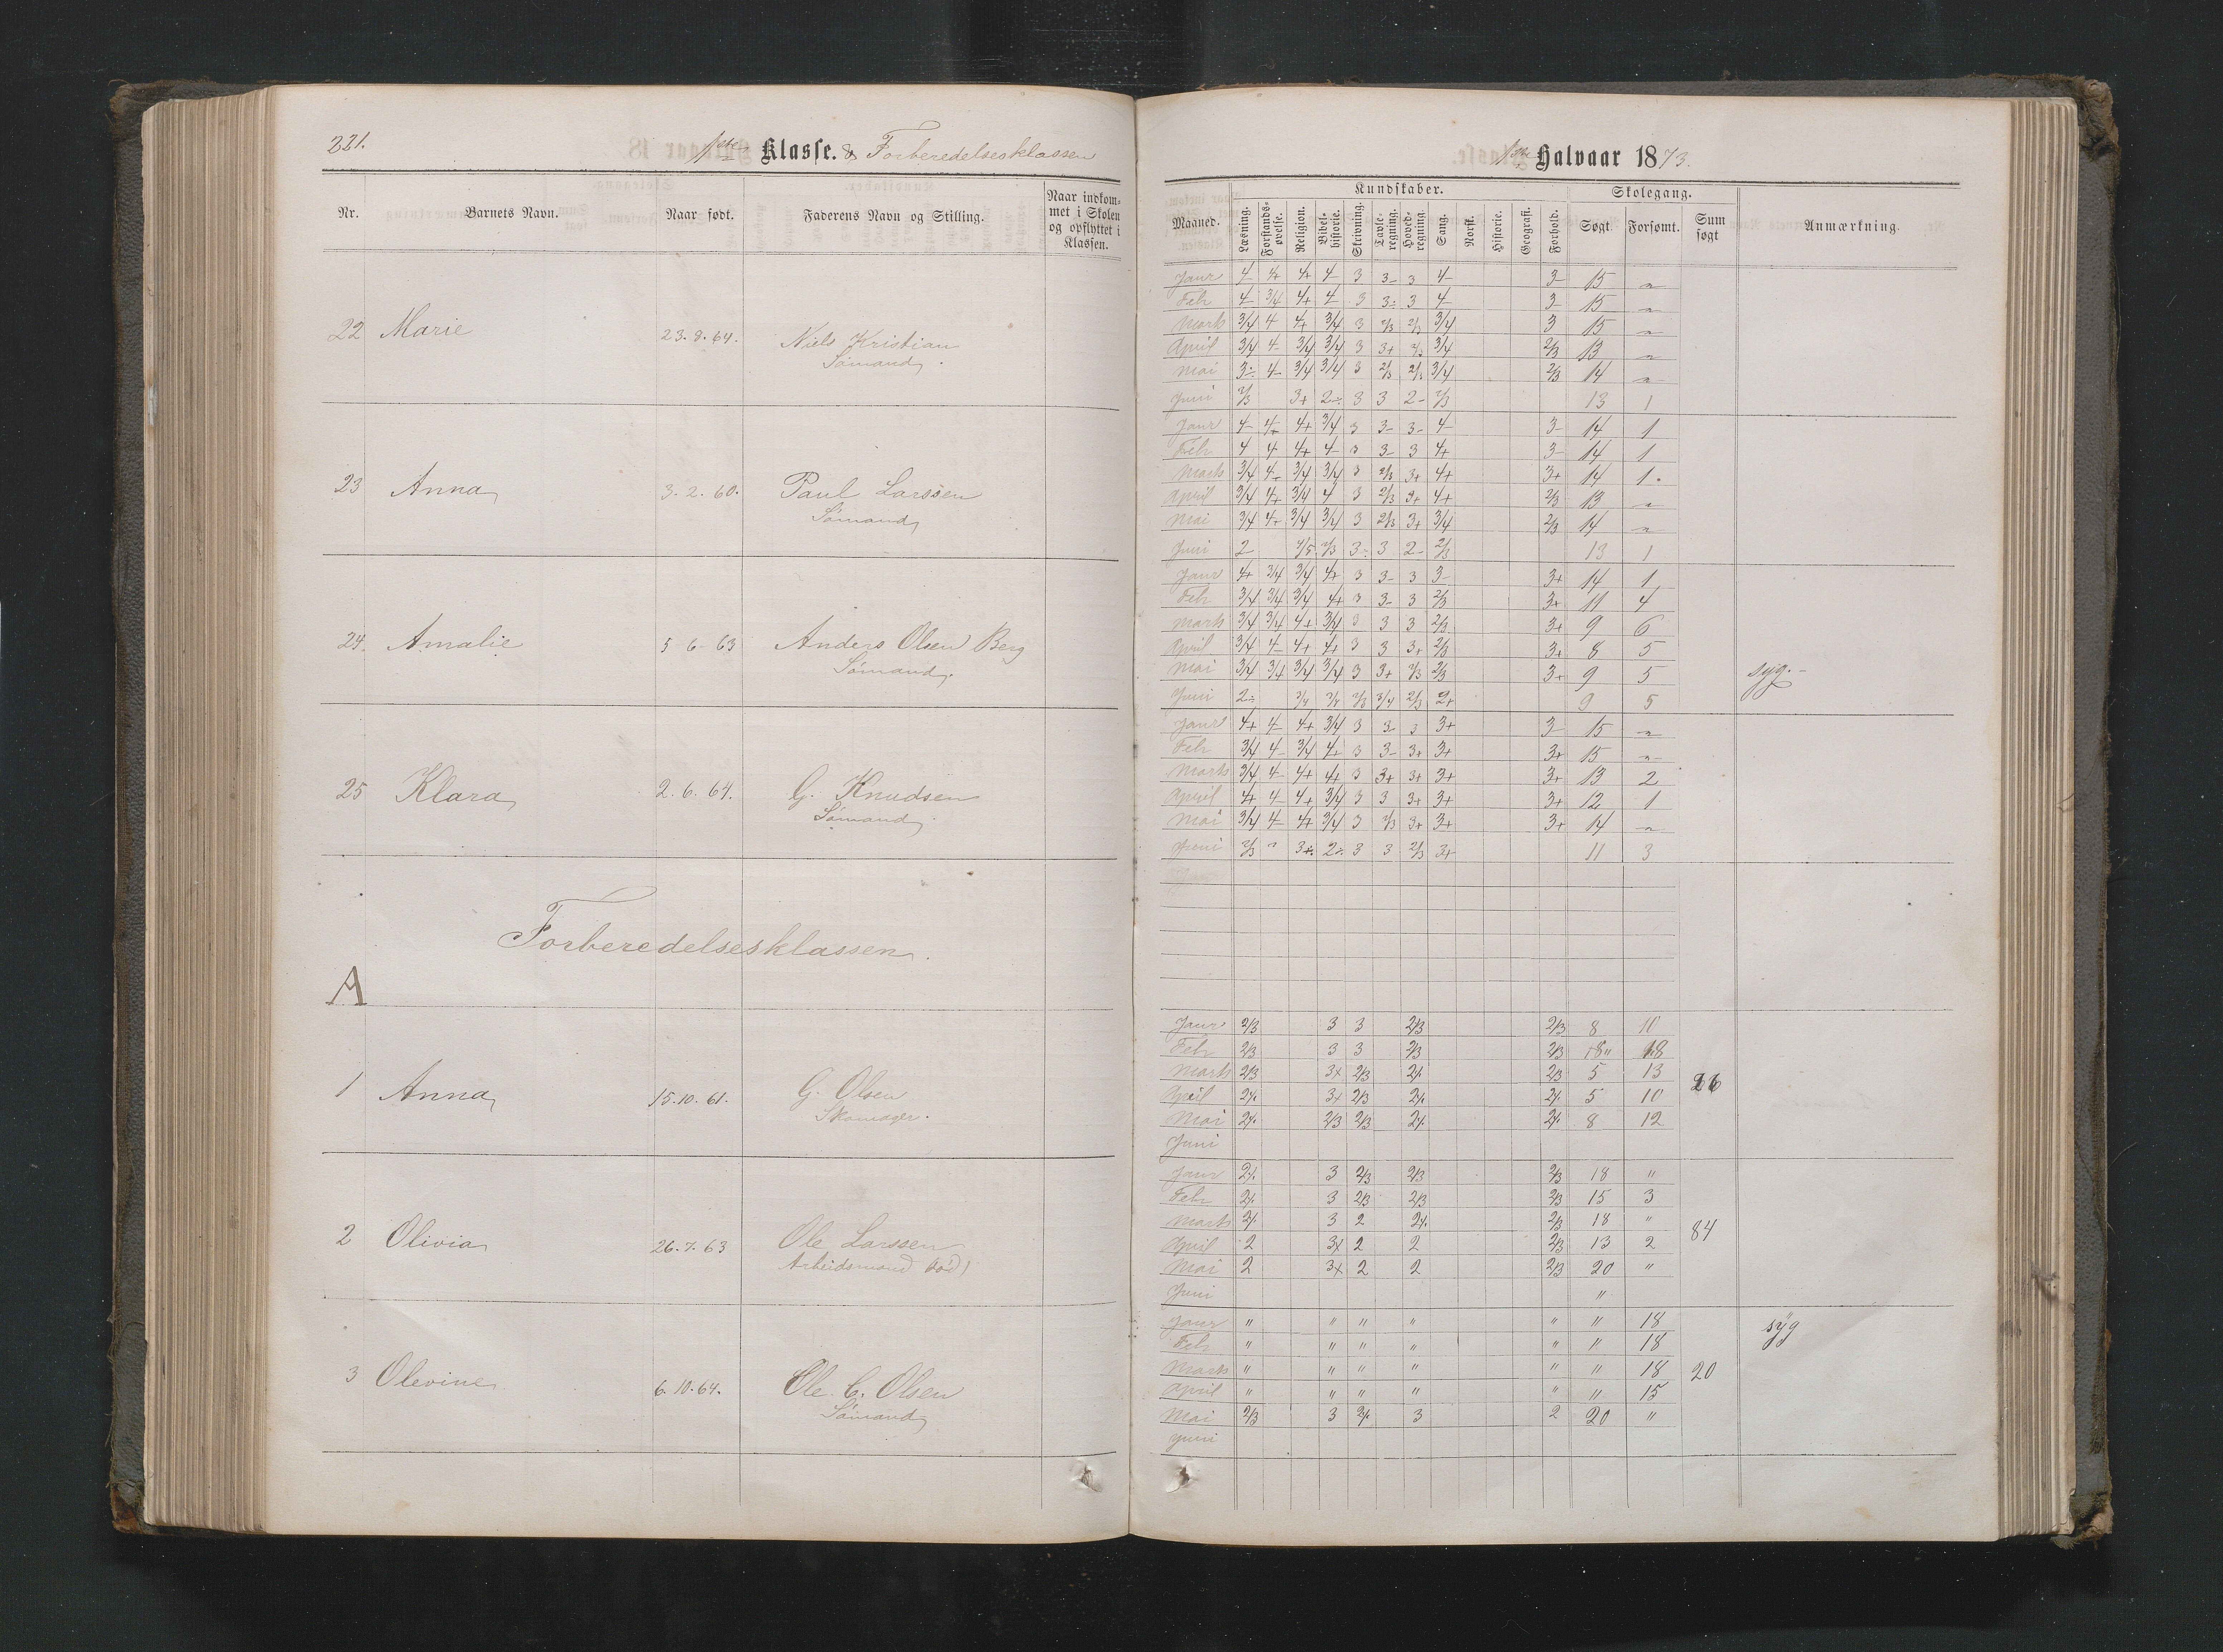 221.
1ste Klasse. & Forberedelsesklassen
Nr. Barnets Navn. Naar født. Faderens Navn og Stilling. Naar indkom-
met i Skolen
og opflyttet i
Klassen.
22 Marie 23. 9. 64. Niels Kristian
Sømand.
23 Anna 3. 2. 60. Paul Larssen
Sømand
24. Amalie 5 6 - 63 Anders Olsen Berg
Sømand.
25 Klara 2. 6. 64. G. Knudsen
Sømand
Forberedelsesklassen.
A
1 Anna 15. 10. 61. G. Olsen
Skomager.
2 Olivia 26. 7. 63 Ole Larssen
Arbeidsmand død)
3 Olevine 6. 10. 64. Ole C. Olsen
Sømand
1ste Halvaar 1873.
Maaned. Kundskaber. Skolegang. Anmærkning.
Læsning. Forstands-
øvelse. Religion. Bibel-
historie. Skrivning. Tavle-
regning. Hoved-
regning. Sang. Norsk. Historie. Geografi. Forhold. Søgt. Forsømt. Sum
søgt
Janr 4- 4+ 4+ 4- 3 3- 3 4- 3- 15 "
Febr 4- 3/4 4+ 4- 3 3- 3 4- 3- 15 "
Marts 3/4 4 4+ 3/4 3 2/3 2/3 3/4 3 15 "
April 3/4 4- 3/4 3/4 3 3+ 2/3 3/4 2/3 13 "
Mai 3- 4- 3/4 3/4 3 2/3 2/3 3/4 2/3 14 "
Juni 2/3 3+ 2- 3 3 2- 2/3 13 1
Janr 4- 4+ 4+ 3/4 3 3- 3- 4- 3- 14 1
Febr 4 4 4+ 4- 3 3- 3 4+ 3- 14 1
Marts 3/4 4- 3/4 3/4 3 2/3 3+ 4+ 3+ 14 1.
April 3/4 4+ 3/4 4 3 2/3 3+ 4+ 2/3 13 "
Mai 3/4 4+ 3/4 3/4 3 2/3 3+ 3/4 2/3 14 "
Juni 2 2/3 3- 3 2- 2/3 13 1
Janr 4+ 3/4 3/4 4+ 3 3- 3 3- 3+ 14 1
Febr 3/4 3/4 3/4 4+ 3 3- 3 2/3 3+ 11 4
Marts 3/4 3/4 4+ 3/4 3 3 3 2/3 3+ 9 6
April 3/4 4- 4+ 4+ 3 3 3+ 2/3 3+ 8 5
Mai 3/4 3/4 3/4 3/4 3 3+ 2/3 2/3 3+ 9 5 syg.-
Juni 2- 3/4 2/3 2+ 9 5
Janr 4+ 4- 4+ 3/4 3 3- 3 3+ 3- 15 "
Febr 3/4 4- 3/4 4+ 3 3- 3+ 3+ 3+ 15 "
Marts 3/4 4- 4+ 4+ 3 3+ 3+ 3+ 3+ 13 2
April 4+ 4- 4+ 3/4 3 3 3+ 3+ 3+ 12 1
Mai 3/4 4- 4+ 3/4 3 2/3 3+ 3+ 3+ 14 "
Juni 2/3 " 3÷ 2÷ 3 3 2/3 3+ 11 3
Janr 2/3 3 3 2/3 2/3 8 10
Febr 2/3 3 3 2/3 2/3 18
Marts 2/3 3+ 2/3 2÷ 2/3 5 13 26
April 2÷ 3+ 2/3 2÷ 2÷ 5 10
Mai 2÷ 2/3 2/3 2÷ 2÷ 8 12
Juni
Janr 2÷ 3 2/3 2/3 2/3 18 "
Febr 2÷ 3 2/3 2/3 2/3 15 3
Marts 2÷ 3 2 2÷ 2/3 18 " 84
April 2 3+ 2 2 2/3 13 2
Mai 2 3+ 2 2 2/3 20 "
Juni "
Janr " " " " " " 18 syg
Febr " " " " " " 18
Marts " " " " " " 18 20
April " " " " " " 15
Mai 2/3 3 2÷ 3 2 20 "
Juni